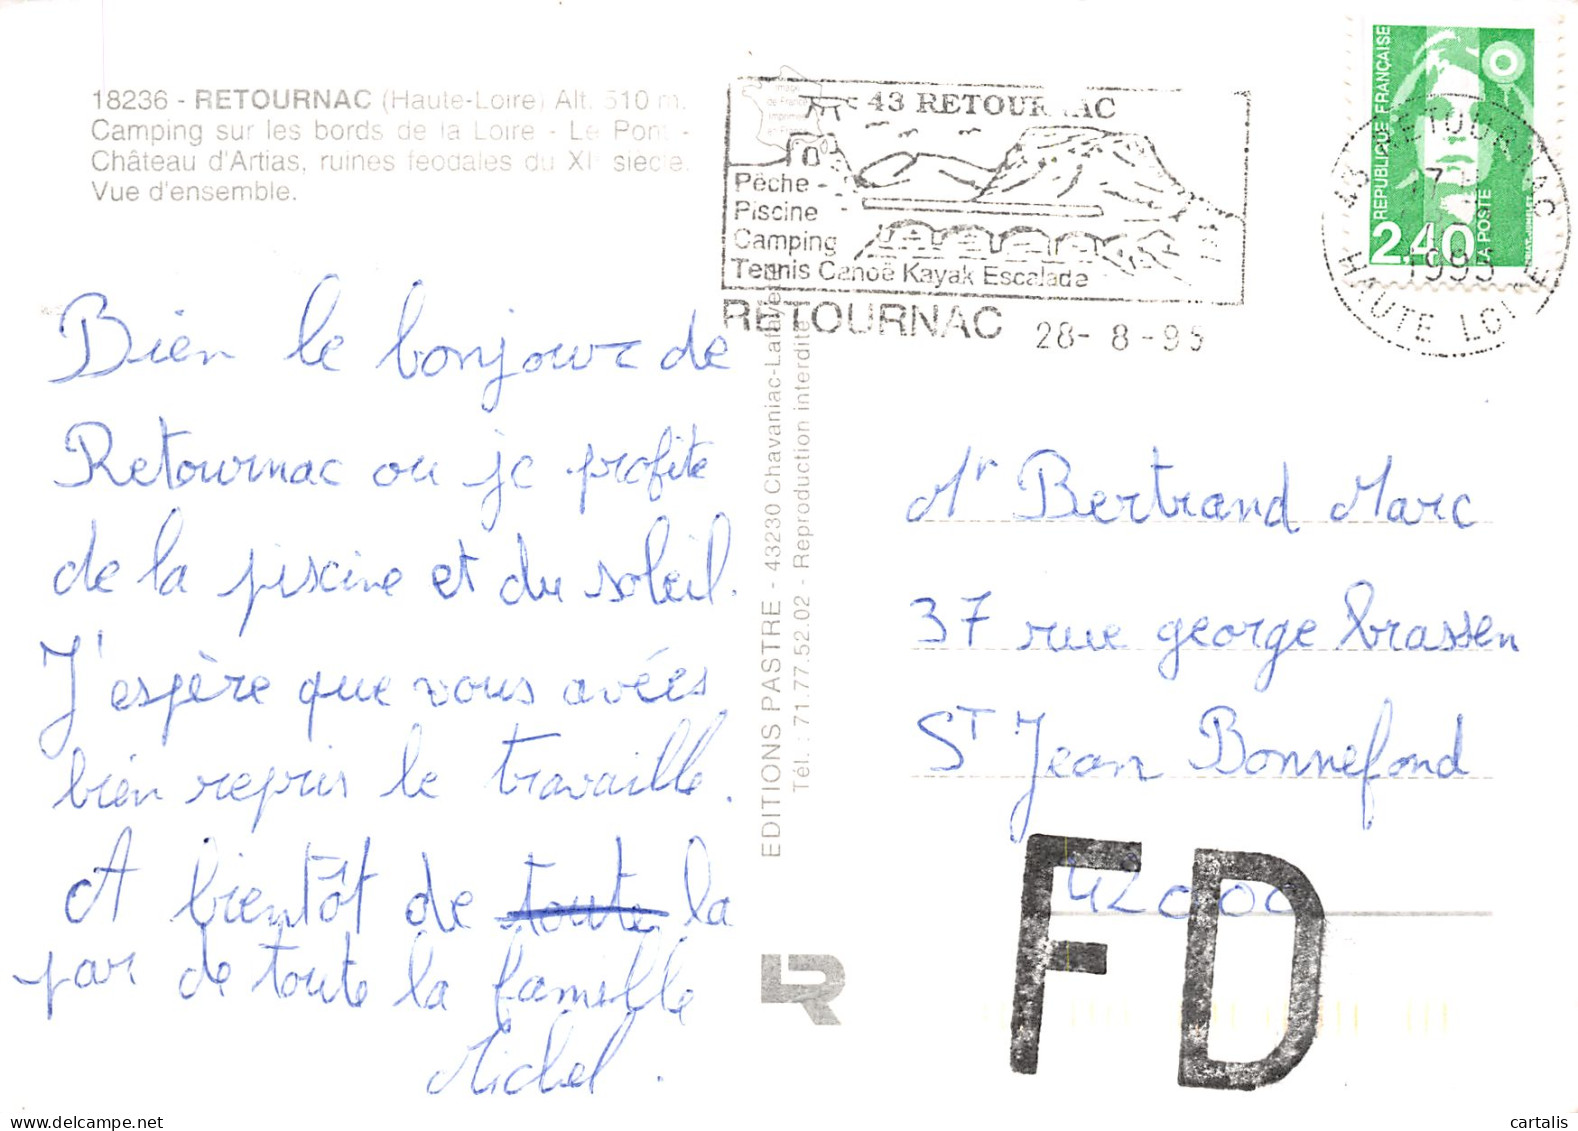 18236 - RETOURNAC (Haute-Loire) Alt. 510 m.
Camping sur les bords de la Loire - Le Pont -
Château d'Artias, ruines féodales du XIe siècle.
Vue d'ensemble.
Bien le bonjour de
Retournac ou je profite
de la piscine et du soleil.
J'espère que vous avées
bien repris le travaille.
A bientôt de toute la
par de toute la famille
Michel.
EDITIONS PASTRE - 43230 Chavaniac-Lafayette
Tél. : 71.77.52.02 - Reproduction interdite
Image
de France
Imprimée
en France
43 RETOURNAC
Pêche -
Piscine
Camping
Tennis Canoë Kayak Escalade
RETOURNAC 28-8-95
REPUBLIQUE FRANÇAISE
2,40
LA POSTE
43 RETOURNAC
1995
HAUTE LOIRE
Mr Bertrand Marc
37 rue george brassen
ST Jean Bonnefond
42000
FD
LR
cartalis.delcampe.net